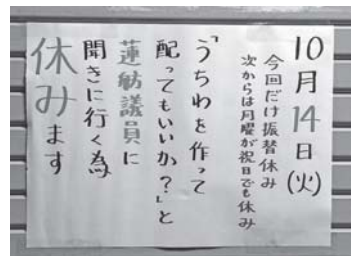 10月14日(火)
今回だけ振替休み
次からは月曜が祝日でも休み
「うちわを作って
配ってもいいか?」と
蓮舫議員に
聞きに行く為
休みます